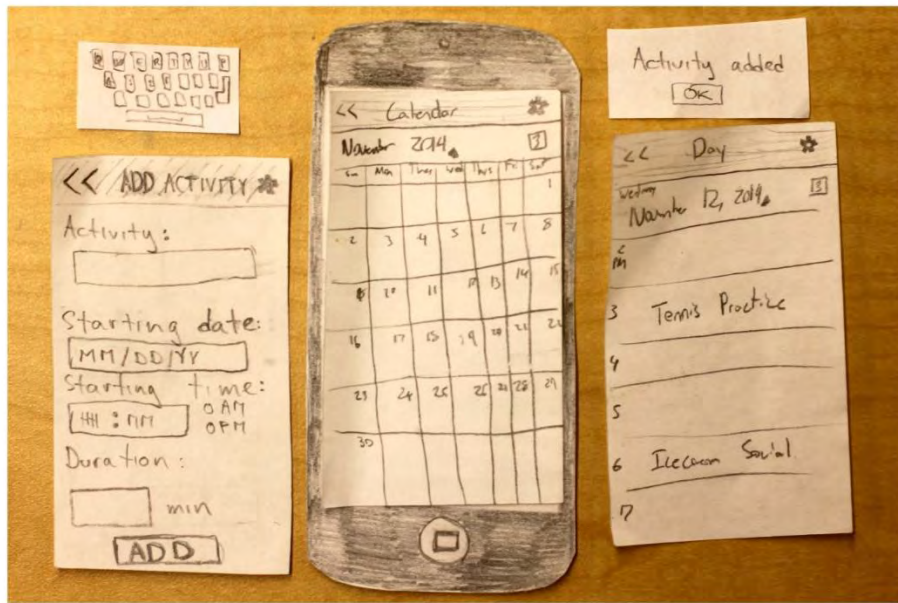 << ADD ACTIVITY
Activity:
Starting date:
MM/DD/YY
Starting time:
HH : MM
O AM
O PM
Duration:
min
ADD
<< Calendar
November 2014
3
Mon Tues Wed Thus Fri Sat
1
2 3 4 5 6 7 8
10 11 12 13 14 15
16 17 18 19 20 21 22
23 24 25 28 29
30
Activity added
OK
<< Day
Wednesday
November 12, 2014
3
2
PM
3 Tennis Practice
4
5
6 Icecream Social
7